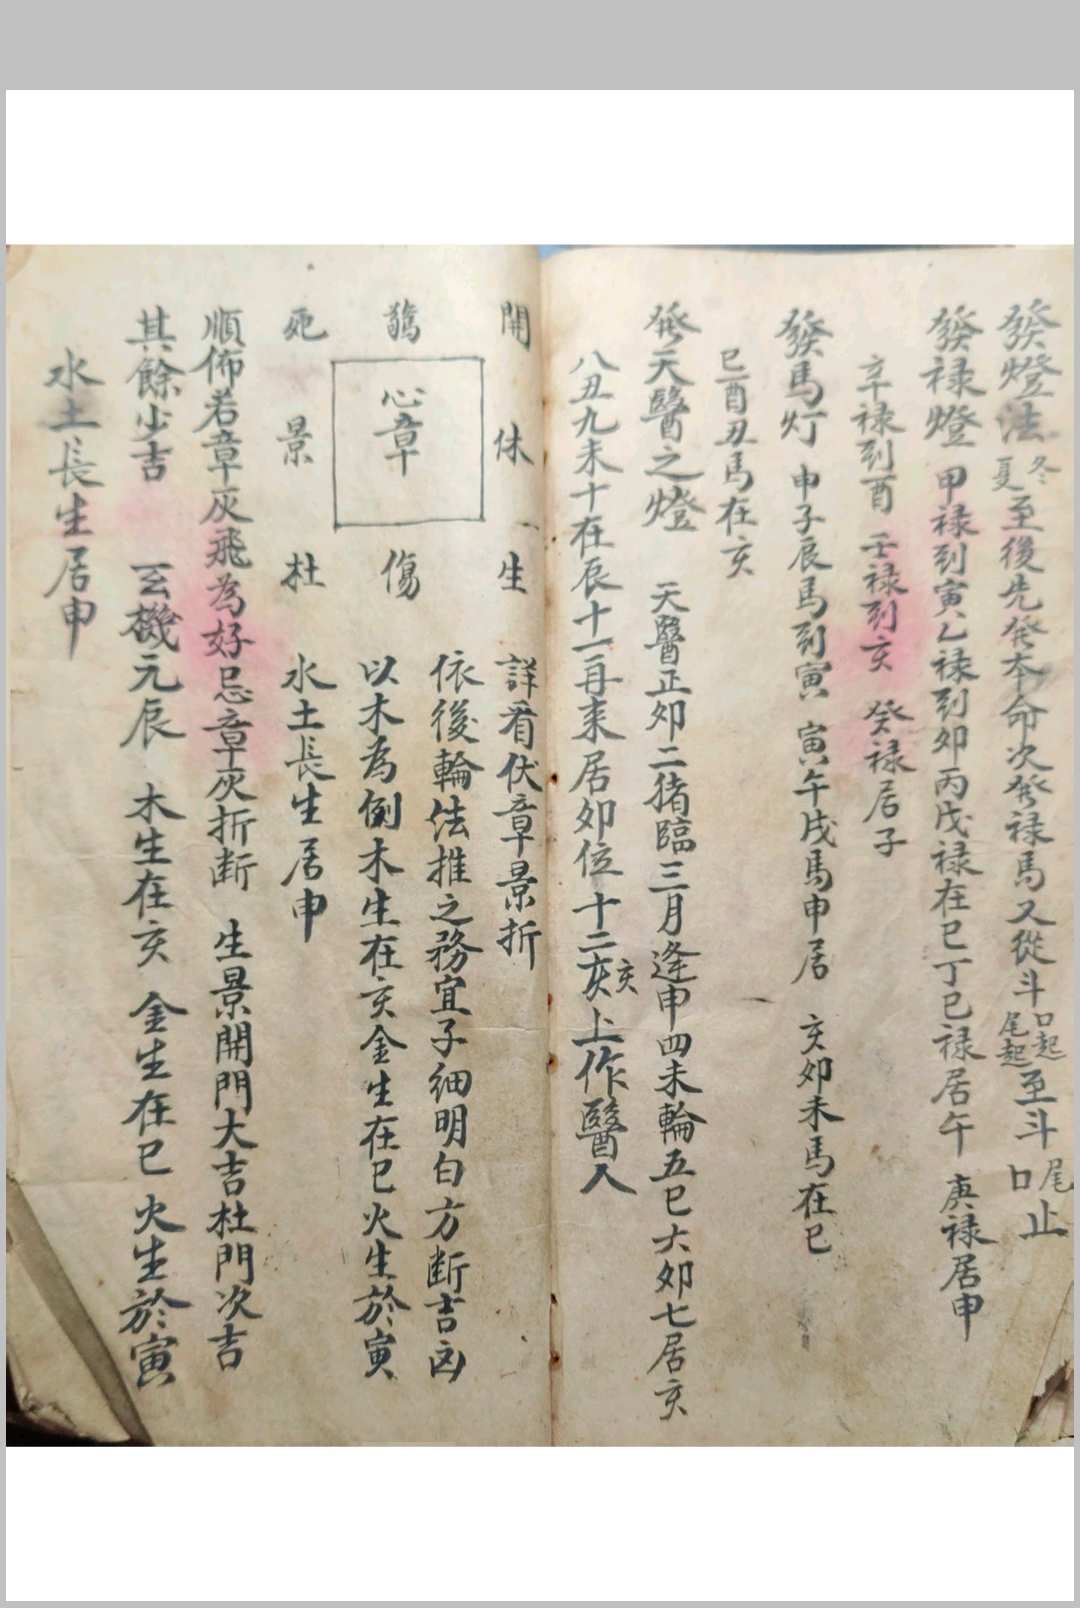 發燈法 冬夏至後先発本命次発禄馬又從斗口起尾起至斗尾口止
發禄燈 甲禄到寅乙禄到卯丙戊禄在巳丁己禄居午 庚禄居申
辛禄到酉 壬禄到亥 癸禄居子
發馬灯 申子辰馬到寅 寅午戌馬申居 亥卯未馬在巳
巳酉丑馬在亥
発天醫之燈 天醫正卯二猪臨三月逢申四未輪五巳六卯七居亥
八丑九未十在辰十一再来居卯位十二亥亥上作醫人
開 休 生 詳看伏章景折
依後輪法推之務宜子細明白方断吉凶
鶿 心章 傷 以木為例木生在亥金生在巳火生於寅
死 景 杜 水土長生居申
順佈若章灰飛為好忌章灰折断 生景開門大吉杜門次吉
其餘少吉 玄機元辰 木生在亥 金生在巳 火生於寅
水土長生居申